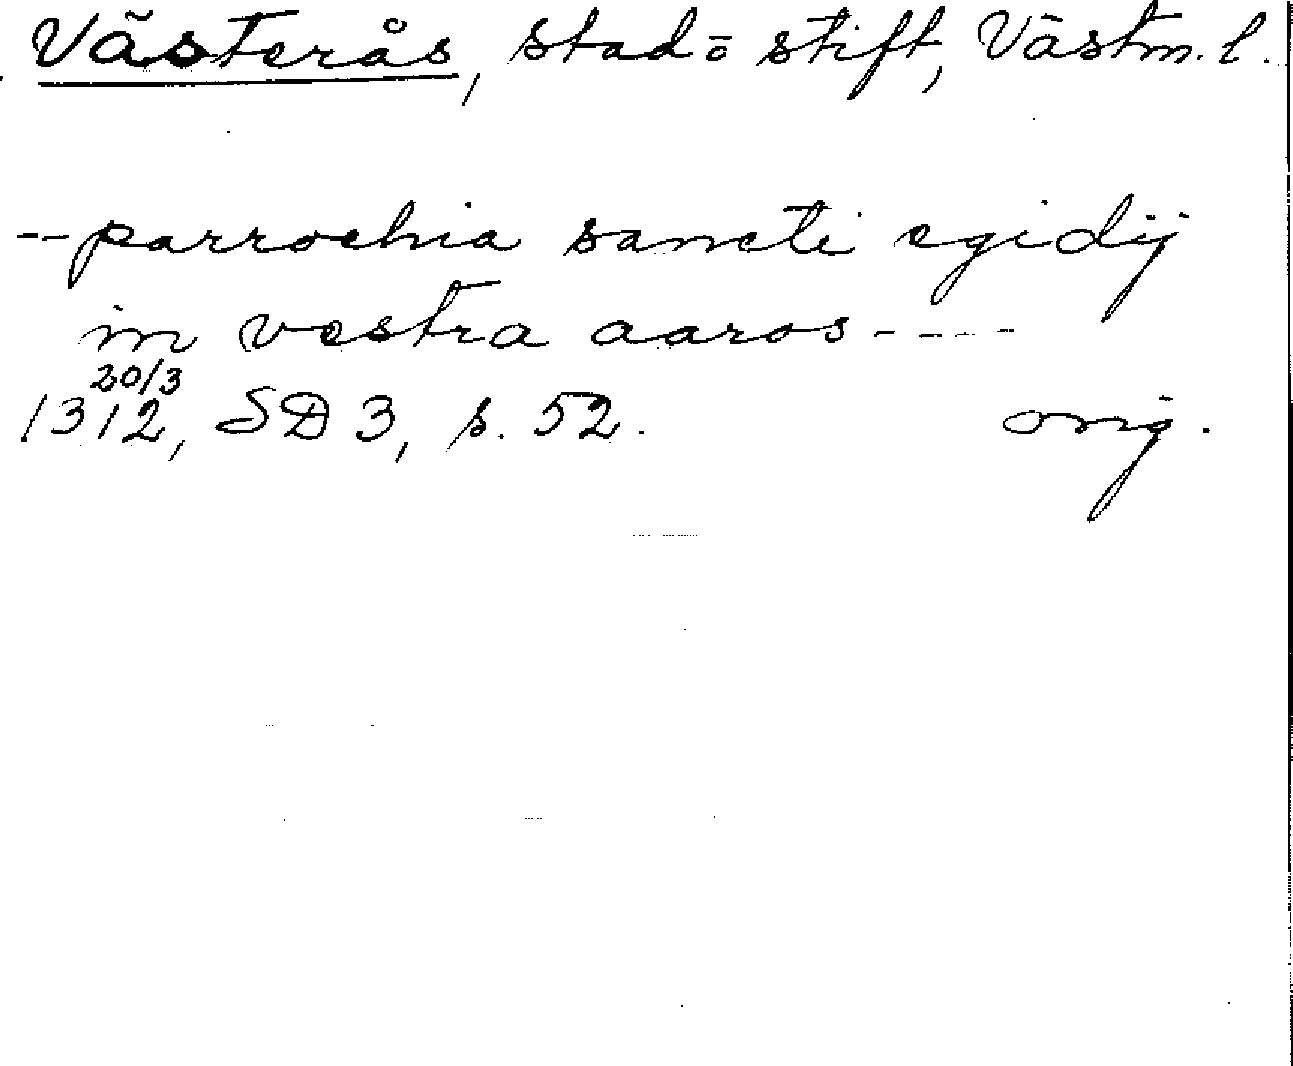 Västerås, stad ō stift, Västm. l.
-- parrochia sancti egidij
in vestra aaros - - - -
20/3
1312, SD 3, s. 52. orig.